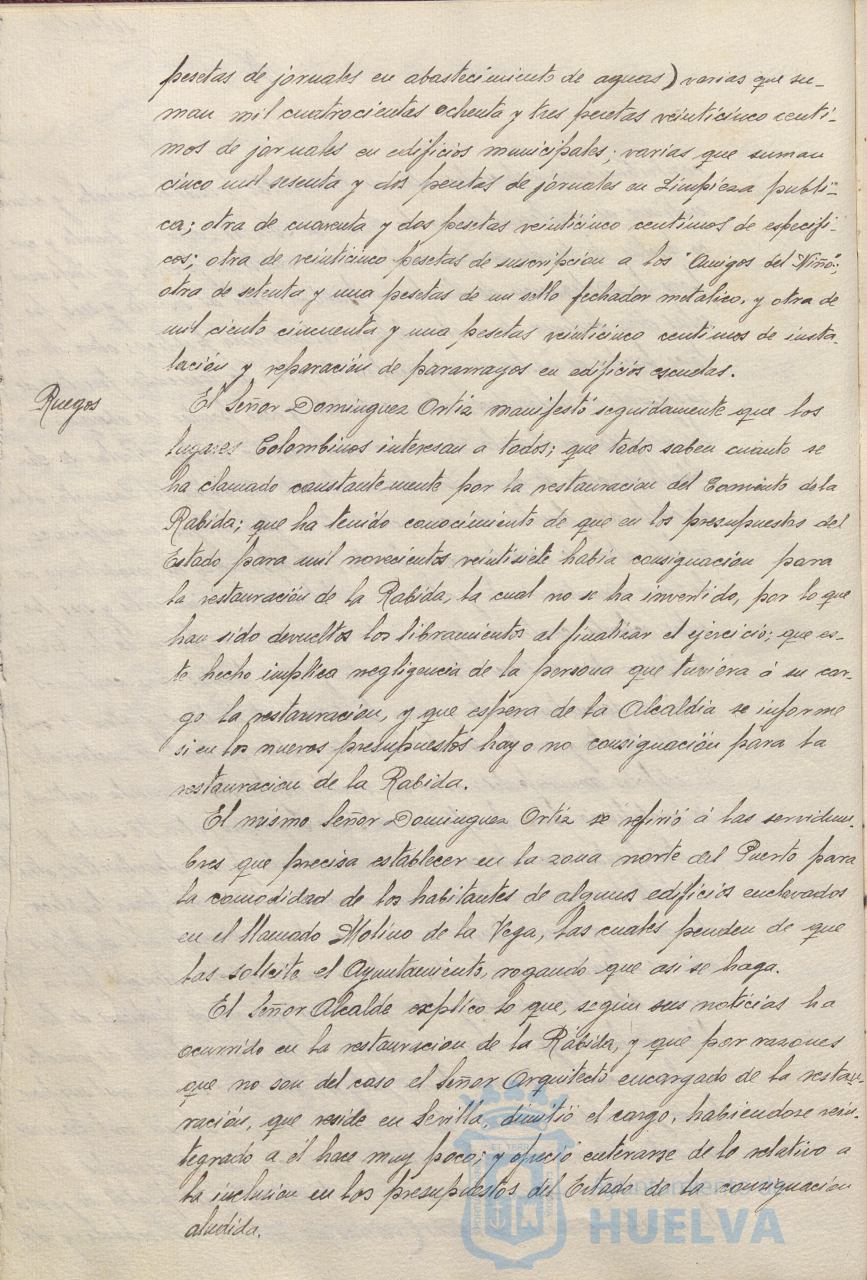 pesetas de jornales en abastecimiento de aguas) varias que su-
man mil cuatrocientas ochenta y tres pesetas veinticinco centi-
mos de jornales en edificios municipales; varias que suman
cinco mil sesenta y dos pesetas de jornales en Limpieza publi-
ca; otra de cuarenta y dos pesetas veinticinco centimos de especifi-
cos; otra de veinticinco pesetas de suscripcion a los "Amigos del Niño";
otra de setenta y una pesetas de un sello fechador metalico, y otra de
mil ciento cincuenta y una pesetas veinticinco centimos de insta-
lación y reparación de pararrayos en edificios escuelas.
Ruegos
El Señor Dominguez Ortiz manifestó seguidamente que los
lugares Colombinos interesan a todos; que todos saben cuanto se
ha clamado constantemente por la restauracion del Convento de la
Rabida; que ha tenido conocimiento de que en los presupuestos del
Estado para mil novecientos veintisiete habia consignacion para
la restauración de la Rabida, la cual no se ha invertido, por lo que
han sido devueltos los libramientos al finalizar el ejercicio; que es-
te hecho implica negligencia de la persona que tuviera á su car-
go la restauracion, y que espera de la Alcaldia se informe
si en los nuevos presupuestos hay o no consignación para la
restauracion de la Rabida.
El mismo Señor Dominguez Ortiz se refirió á las servidum-
bres que precisa establecer en la zona norte del Puerto para
la comodidad de los habitantes de algunos edificios enclavados
en el llamado Molino de la Vega, las cuales penden de que
las solicite el Ayuntamiento, rogando que asi se haga.
El Señor Alcalde explicó lo que, según sus noticias ha
ocurrido en la restauracion de la Rabida, y que por razones
que no son del caso el Señor Arquitecto encargado de la restau-
ración, que reside en Sevilla, dimitió el cargo, habiendose rein-
tegrado a él hace muy poco; y ofreció enterarse de lo relativo a
la inclusion en los presupuestos del Estado de la consignacion
aludida.
Ayuntamiento de
HUELVA